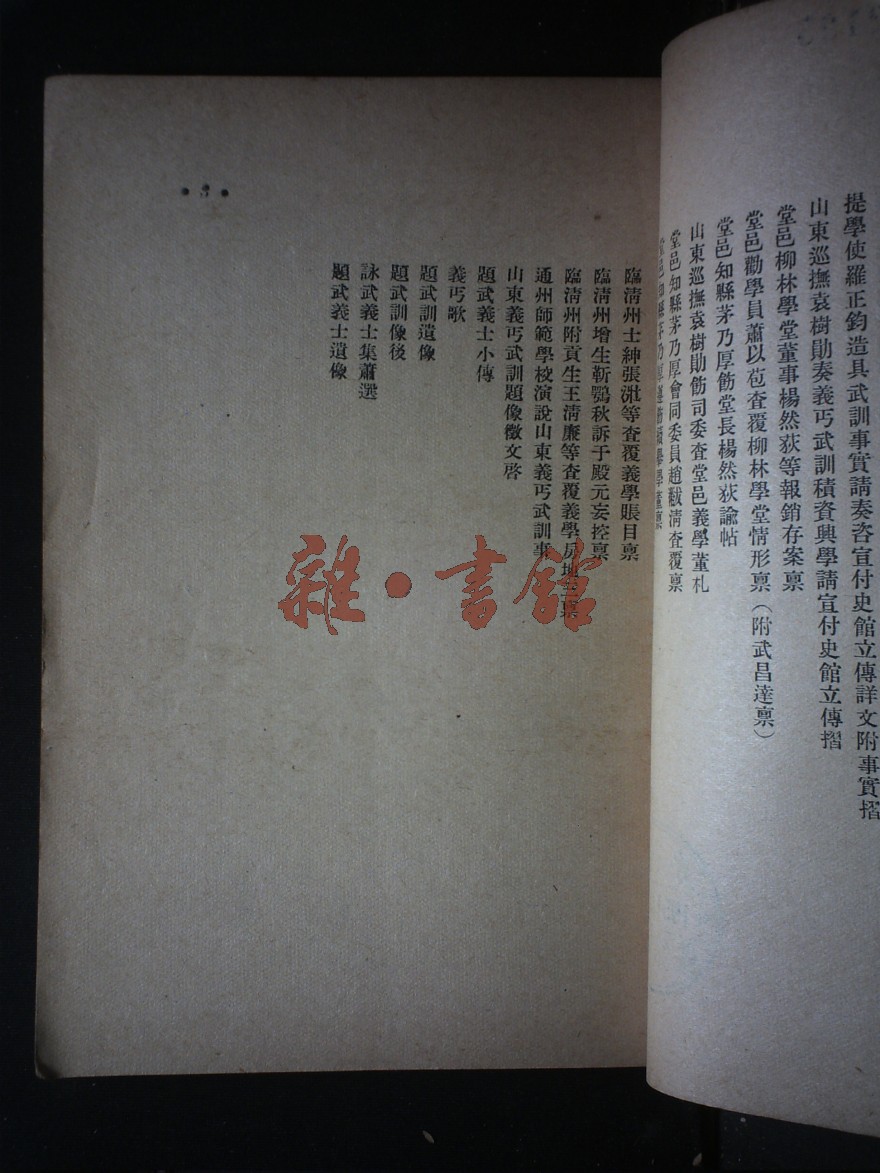 提學使羅正鈞造具武訓事實請奏咨宣付史館立傳詳文附事實摺
山東巡撫袁樹勛奏義丐武訓積資興學請宣付史館立傳摺
堂邑柳林學堂董事楊然荻等報銷存案禀
堂邑勸學員蕭以苞查覆柳林學堂情形禀（附武昌達禀）
堂邑知縣茅乃厚飭堂長楊然荻諭帖
山東巡撫袁樹勛飭司委查堂邑義學董札
堂邑知縣茅乃厚會同委員趙黻清查覆禀
堂邑知縣茅乃厚
臨清州士紳張泚等査覆義學賬目禀
臨清州增生靳鶚秋訴于殿元妄控禀
臨清州附貢生王清廉等査覆義學房地禀
通州師範學校演說山東義丐武訓事
山東義丐武訓題像徵文啓
題武義士小傳
義丐歌
題武訓遺像
題武訓像後
詠武義士集蕭選
題武義士遺像
•3•
雜•書館